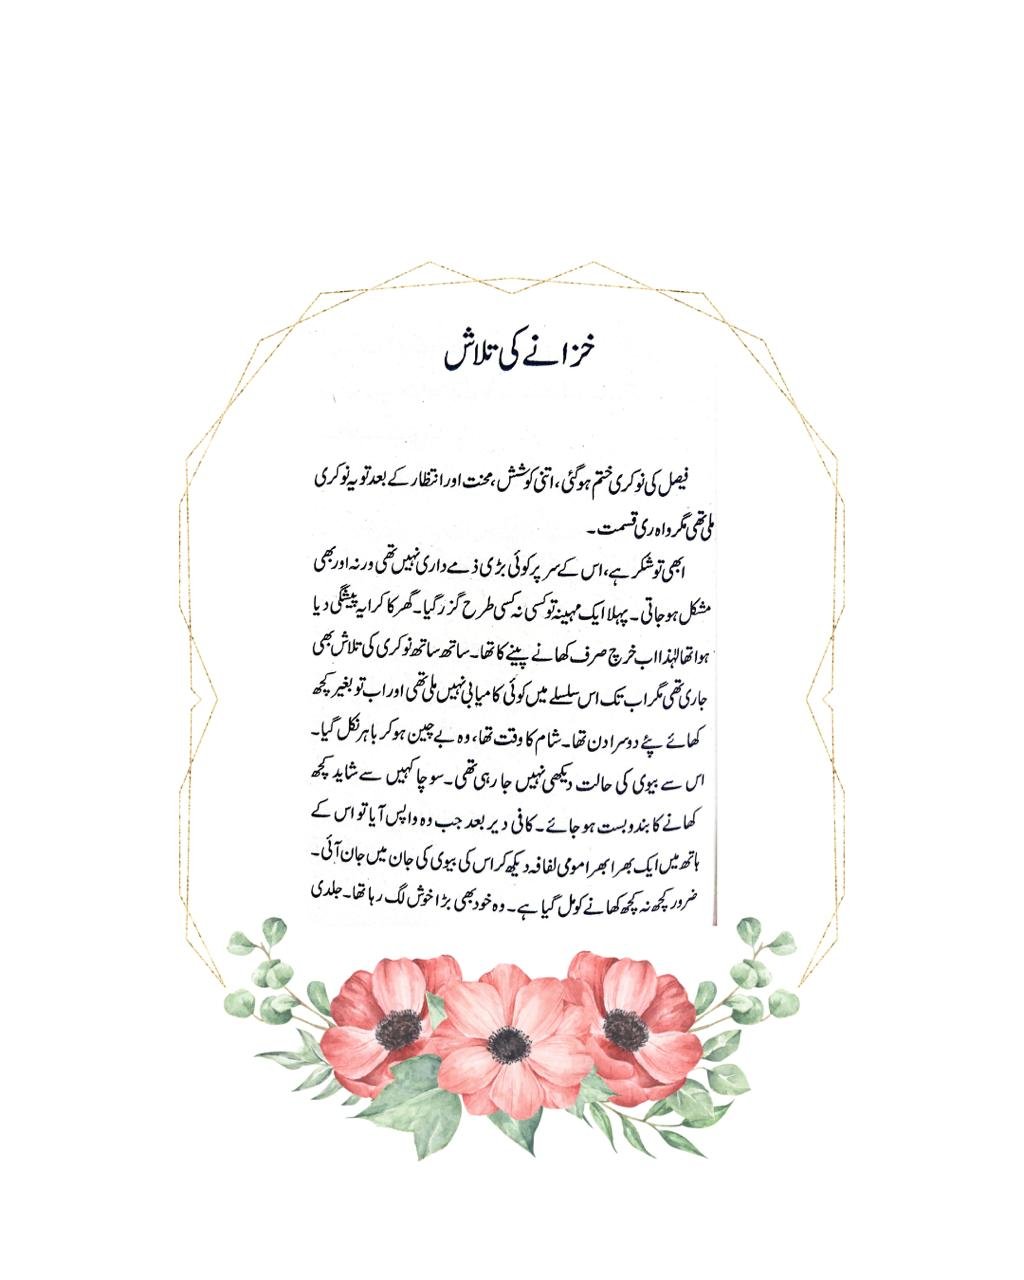 خزانے کی تلاش
فیصل کی نوکری ختم ہوگئی، اتنی کوشش، محنت اور انتظار کے بعد تو یہ نوکری
ملی تھی مگر واہ ری قسمت۔
ابھی تو شکر ہے، اس کے سر پر کوئی بڑی ذمے داری نہیں تھی ورنہ اور بھی
مشکل ہو جاتی۔ پہلا ایک مہینہ تو کسی نہ کسی طرح گزر گیا۔ گھر کا کرایہ پیشگی دیا
ہوا تھا لہٰذا اب خرچ صرف کھانے پینے کا تھا۔ ساتھ ساتھ نوکری کی تلاش بھی
جاری تھی مگر اب تک اس سلسلے میں کوئی کامیابی نہیں ملی تھی اور اب تو بغیر کچھ
کھائے پئے دوسرا دن تھا۔ شام کا وقت تھا، وہ بے چین ہوکر باہر نکل گیا۔
اس سے بیوی کی حالت دیکھی نہیں جا رہی تھی۔ سوچا کہیں سے شاید کچھ
کھانے کا بندوبست ہو جائے۔ کافی دیر بعد جب وہ واپس آیا تو اس کے
ہاتھ میں ایک بھرا بھرا مومی لفافہ دیکھ کر اس کی بیوی کی جان میں جان آئی۔
ضرور کچھ نہ کچھ کھانے کو مل گیا ہے۔ وہ خود بھی بڑا خوش لگ رہا تھا۔ جلدی